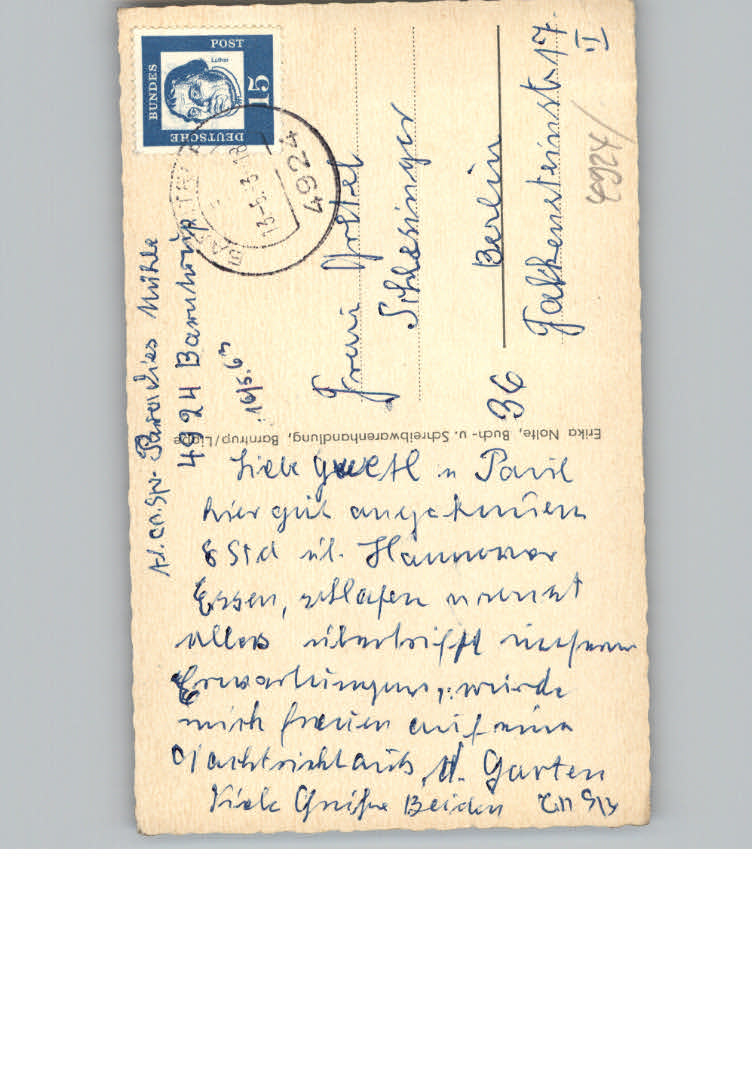 DEUTSCHE
BUNDES
POST
Luther
15
4924
13.-5.63-18
Paradies Mühle
4924 Barntrup
16/5.63
Frau
Schlesinger
36 Berlin
Falkensteinstr 17.
II
4924/
Erika Nolte, Buch- u. Schreibwarenhandlung, Barntrup/Lippe
Liebe u Paul
hier gut angekommen
8 Std üb. Hannover
Essen, schlafen
alles übertrifft unsere
Erwartungen, würde
mich freuen auf eine
Nachricht aus d. Garten
Viele Grüße Beiden